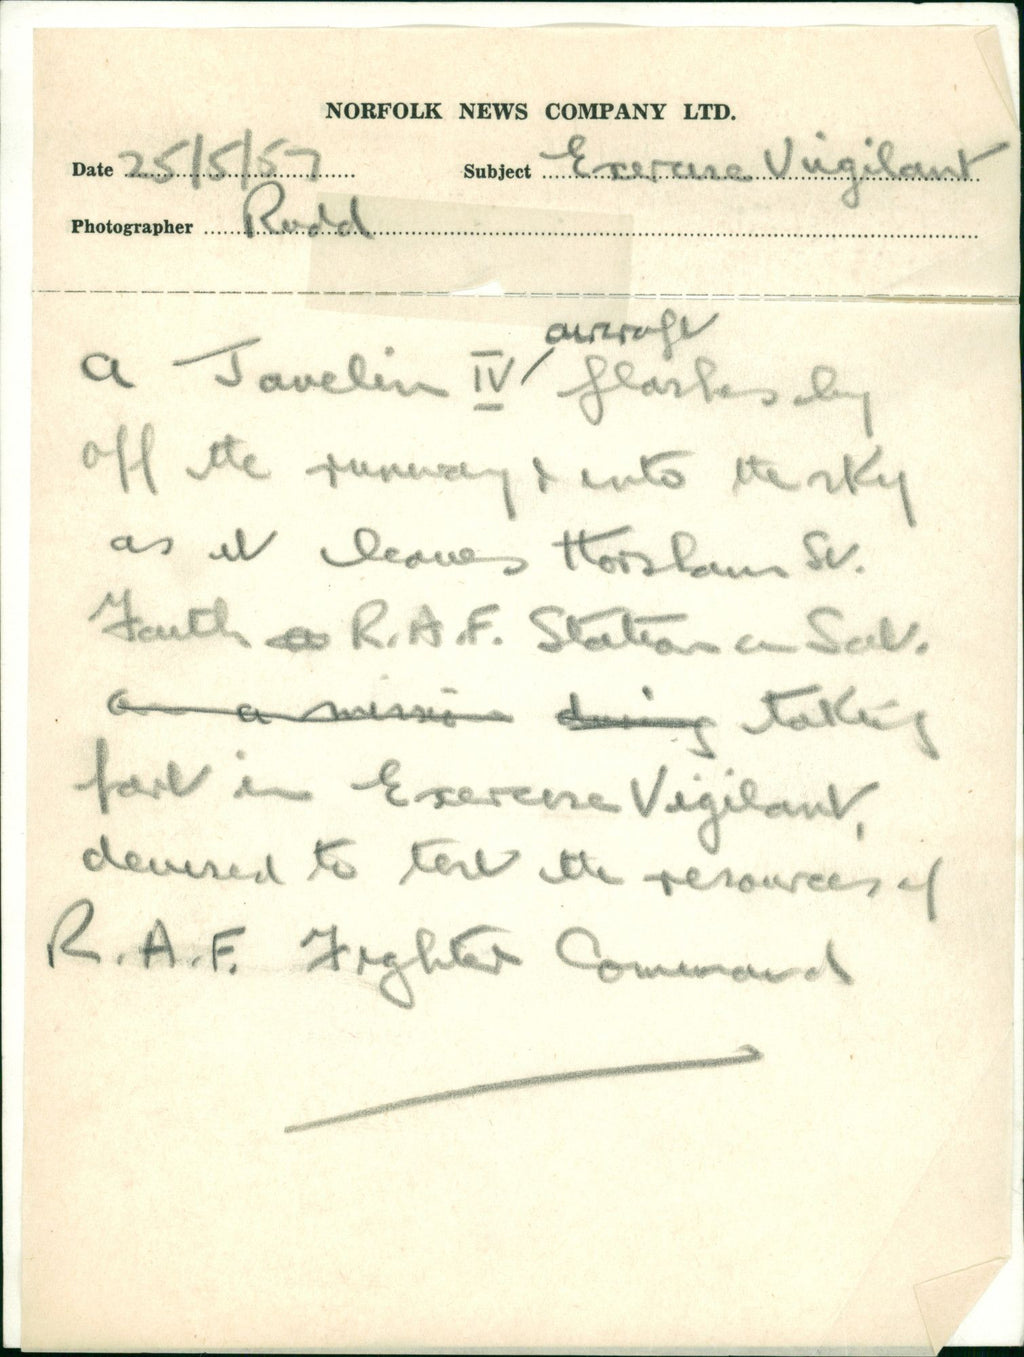 NORFOLK NEWS COMPANY LTD.
Date 25/5/57 Subject Exercise Vigilant
Photographer Rudd
aircraft
A Javelin IV flashes by
off the runway & into the sky
as it leaves Horsham St.
Faith R.A.F. Station on Sat.
on a mission during taking
part in Exercise Vigilant,
devised to test the resources of
R.A.F. Fighter Command